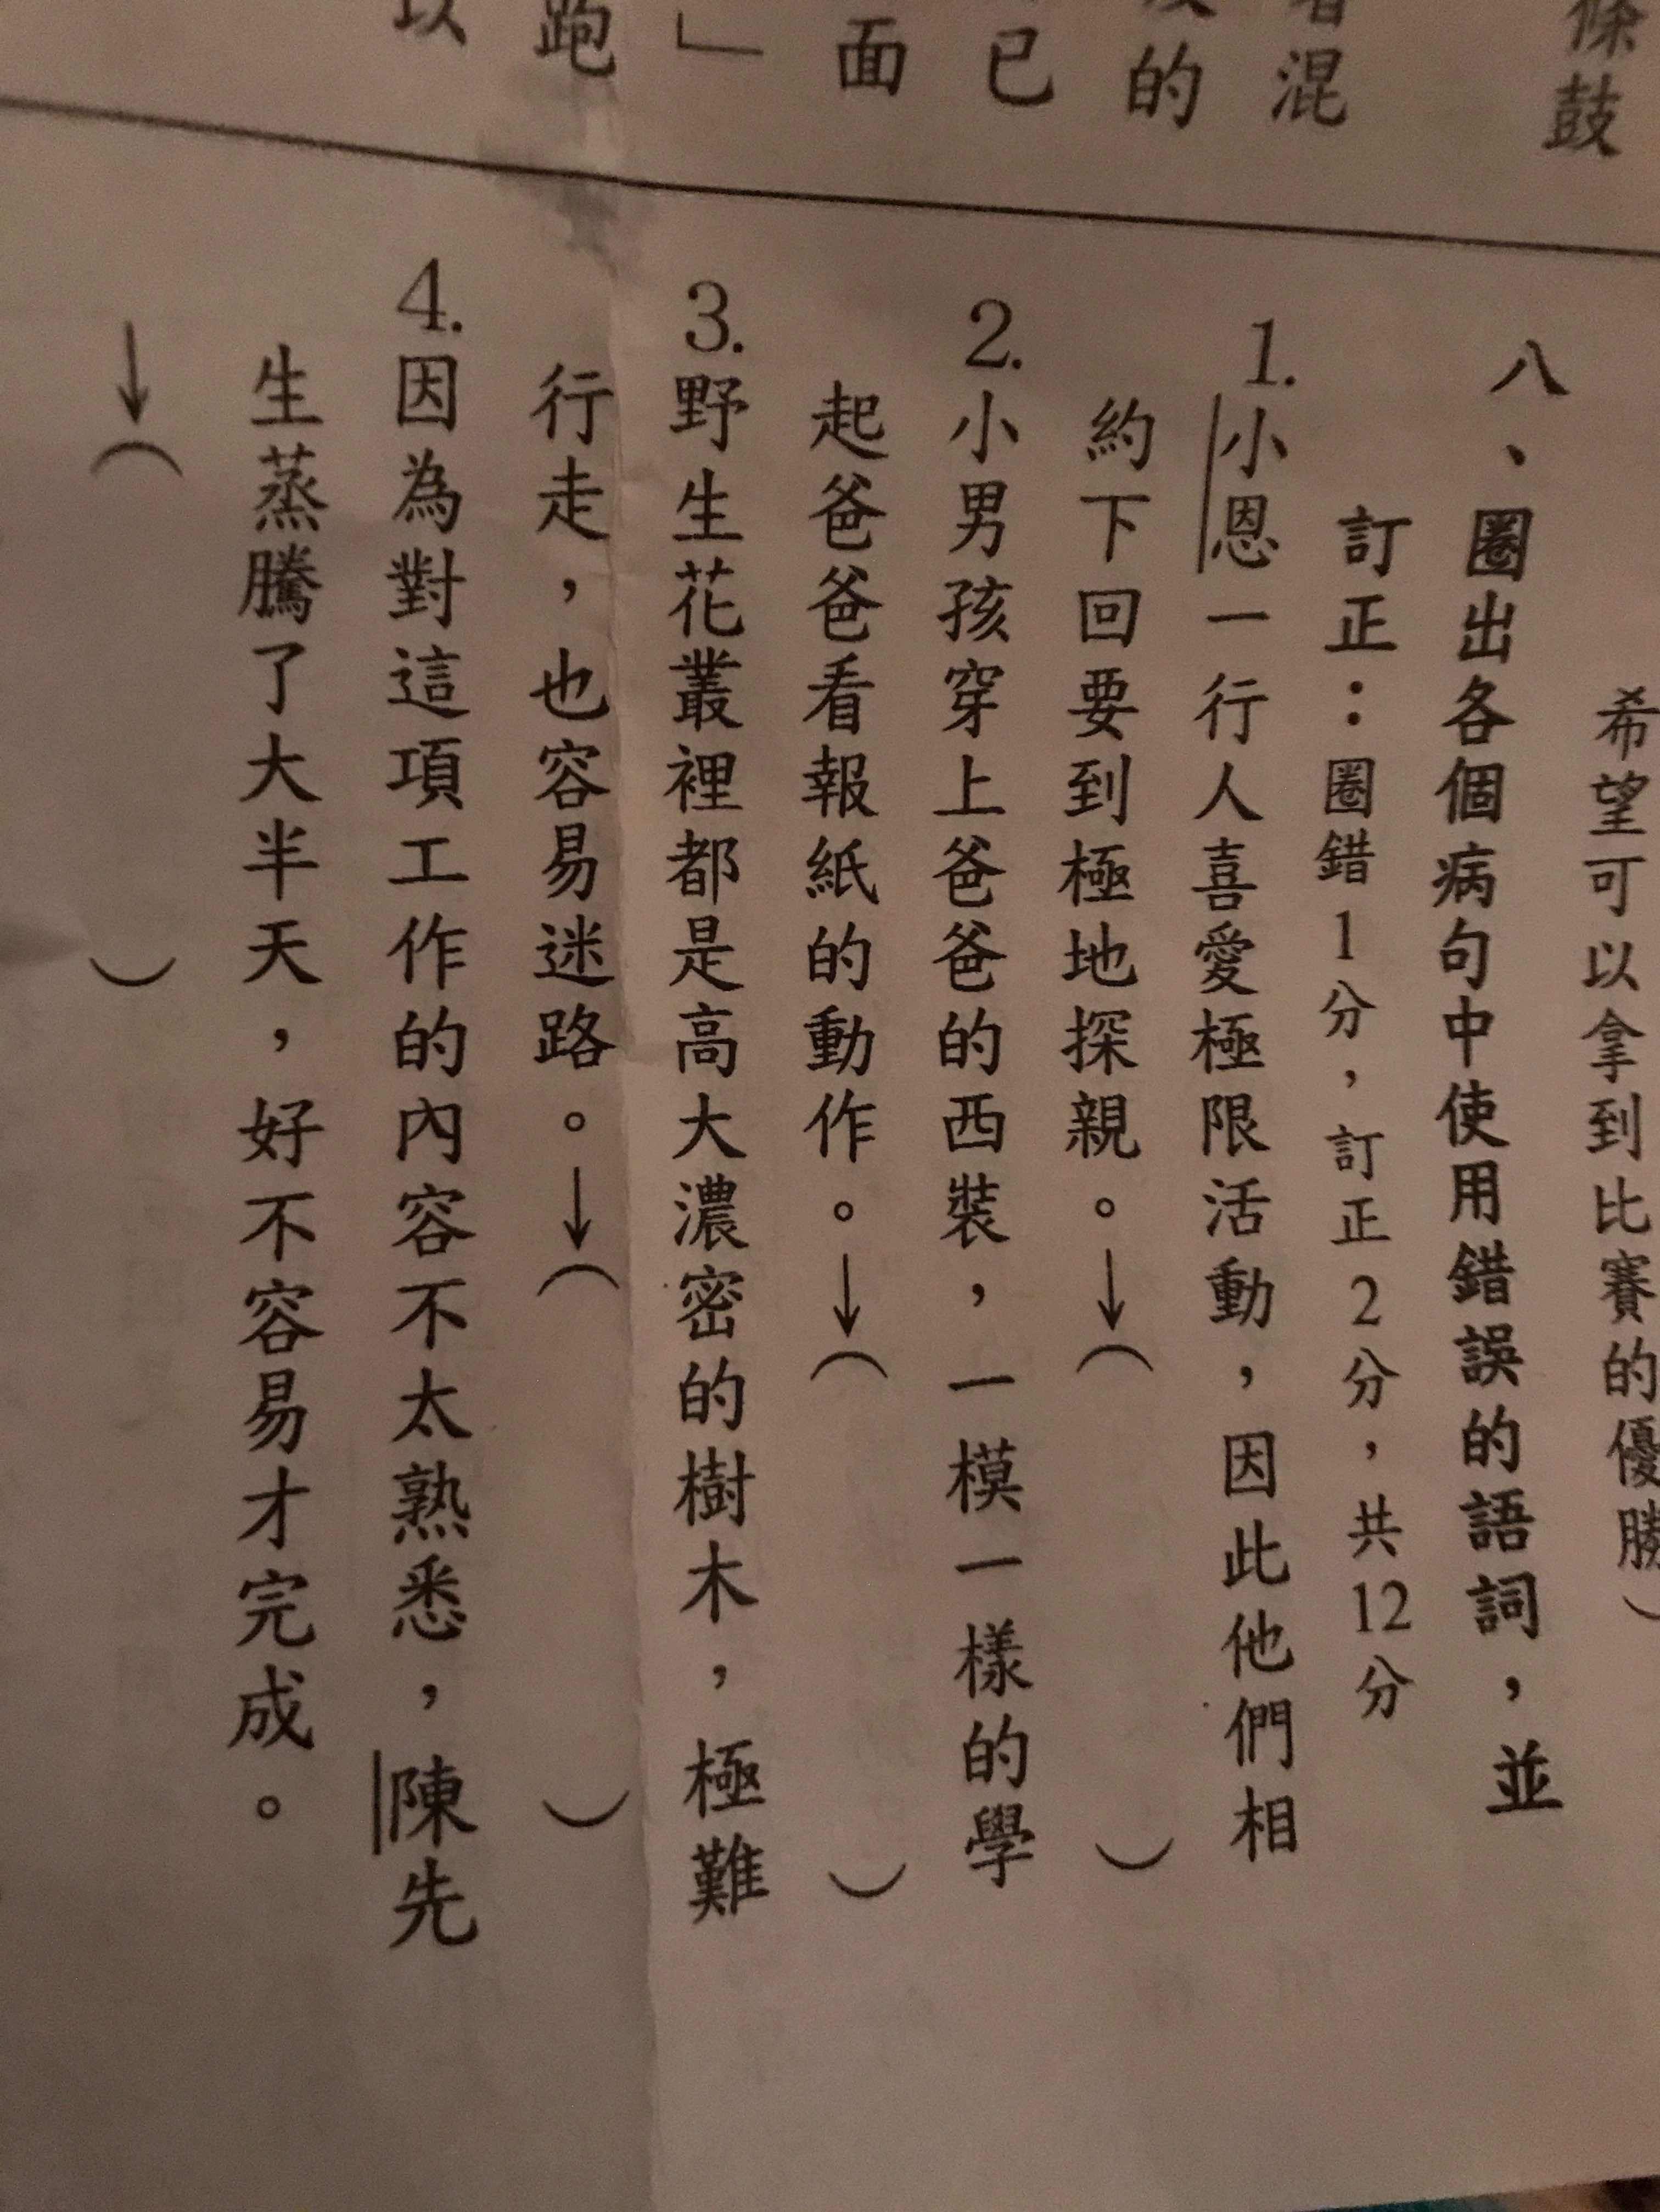 條鼓
混
的
已
面
」
跑
以
希望可以拿到比賽的優勝）
八、圈出各個病句中使用錯誤的語詞，並
訂正：圈錯1分，訂正2分，共12分
1.小恩一行人喜愛極限活動，因此他們相
約下回要到極地探親。→（　　　）
2.小男孩穿上爸爸的西裝，一模一樣的學
起爸爸看報紙的動作。→（　　　）
3.野生花叢裡都是高大濃密的樹木，極難
行走，也容易迷路。→（　　　）
4.因為對這項工作的內容不太熟悉，陳先
生蒸騰了大半天，好不容易才完成。
→（　　　）